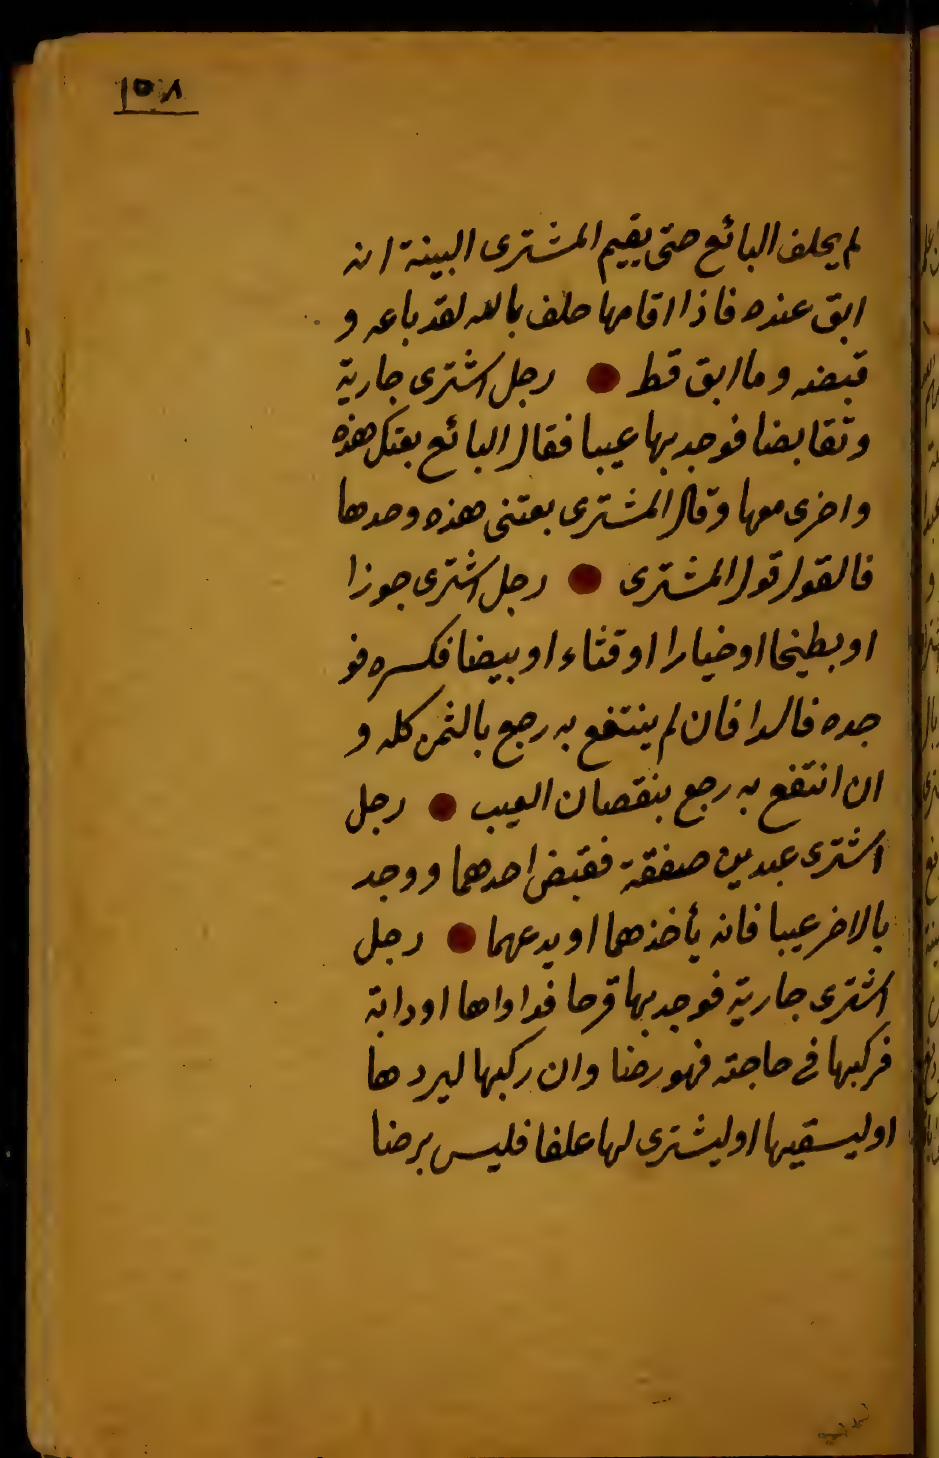 ١٥٨
لم يحلف البائع حتى يقيم المشترى البينة انه
ابق عنده فاذا اقامها حلف بالله لقد باعه و
قبضه وما ابق قط ● رجل اشترى جارية
وتقابضا فوجد بها عيبا فقال البائع بعتك هذه
واخرى معها وقال المشترى بعتنى هذه وحدها
فالقول قول المشترى ● رجل اشترى جوزا
او بطيخا او خيارا او قثاء او بيضا فكسره فو
جده فاسدا فان لم ينتفع به رجع بالثمن كله و
ان انتفع به رجع بنقصان العيب ● رجل
اشترى عبدين صفقة فقبض احدهما ووجد
بالاخر عيبا فانه يأخذهما او يدعهما ● رجل
اشترى جارية فوجد بها قرحا فداواها او دابة
فركبها فى حاجته فهو رضا وان ركبها ليردها
او ليسقيها او ليشترى لها علفا فليس برضا